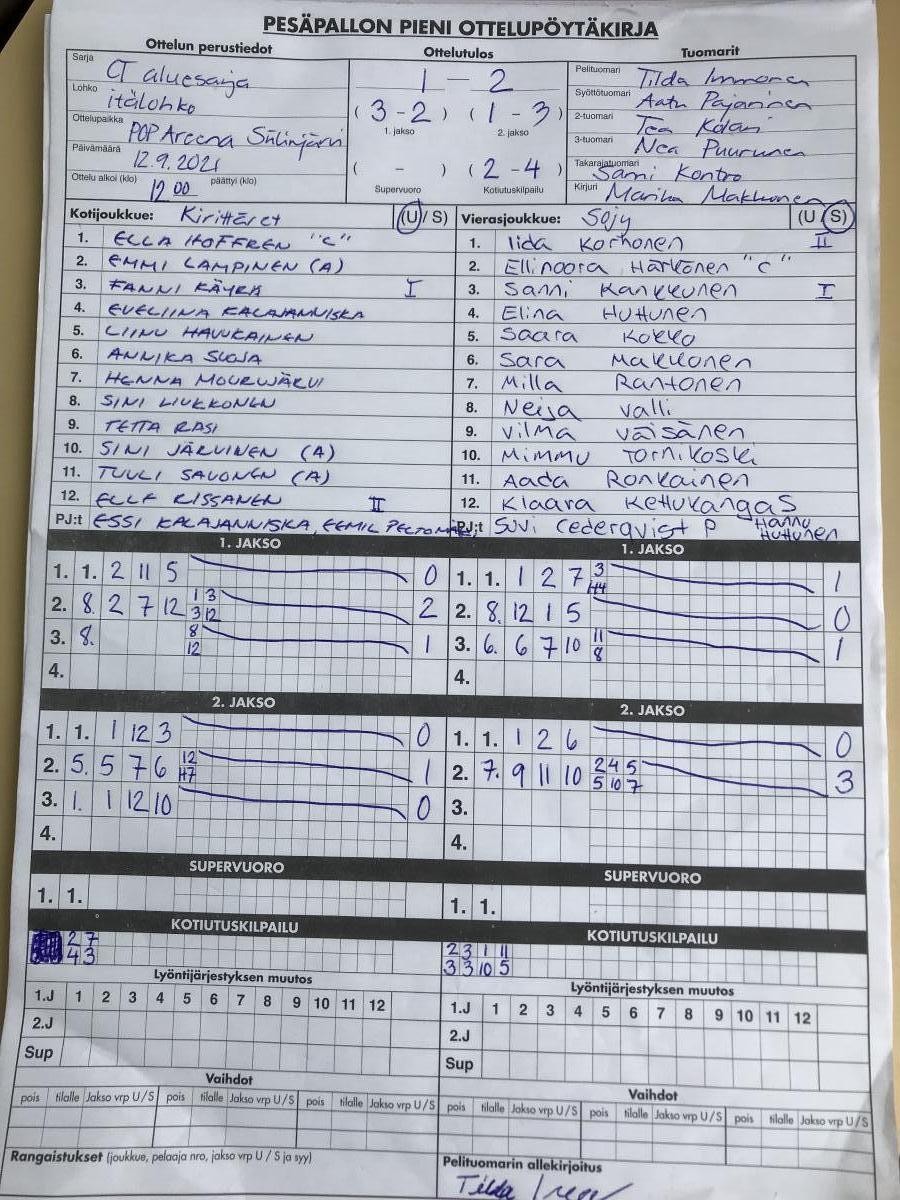 PESÄPALLON PIENI OTTELUPÖYTÄKIRJA
Ottelun perustiedot Ottelutulos Tuomarit
Sarja CT aluesarja 1 - 2 Pelituomari Tilda Immonen
Lohko itälohko (3 - 2) (1 - 3) Syöttötuomari Aatu Pajarinen
1. jakso 2. jakso
Ottelupaikka POP Areena Siilinjärvi 2-tuomari Tea
Päivämäärä 12.9.2021 ( - ) (2 - 4) 3-tuomari Nea Puurunen
Takarajatuomari Sami Kontro
Ottelu alkoi (klo) 12 00 päättyi (klo) Supervuoro Kotiutuskilpailu Kirjuri Marika Makkonen
Kotijoukkue: Kirittäret (U / S) Vierasjoukkue: Siijy (U / S)
1. ELLA HOFFREN "C" 1. Iida Korhonen II
2. EMMI LAMPINEN (A) 2. Ellinoora Härkönen "C"
3. FANNI KÄYRÄ I 3. Sanni Kankkunen I
4. EVELIINA KALAJANNISKA 4. Elina Huttunen
5. LIINU HAUKKAINEN 5. Saara Kokko
6. ANNIKA SUOJA 6. Sara Makkonen
7. HENNA 7. Milla Rantonen
8. SINI LIUKKONEN 8. Neija Valli
9. TETTA RASI 9. Vilma Väisänen
10. SINI JÄRVINEN (A) 10. Mimmu Tornikoski
11. TUULI SAVONEN (A) 11. Aada Ronkainen
12. ELLE RISSANEN II 12. Klaara Kettukangas
PJ:t ESSI KALAJANNISKA, EEMIL PJ:t Suvi Cederqvist P Hannu Huttunen
1. JAKSO 1. JAKSO
1. 1. 2 11 5 0 1. 1. 1 2 7 3 H4 1
2. 8. 2 7 12 1 3 3 12 2 2. 8. 12 1 5 0
3. 8. 8 12 1 3. 6. 6 7 10 11 8 1
4. 4.
2. JAKSO 2. JAKSO
1. 1. 1 12 3 0 1. 1. 1 2 6 0
2. 5. 5 7 6 12 H7 1 2. 7. 9 11 10 2 4 5 5 10 7 3
3. 1. 1 12 10 0 3.
4. 4.
SUPERVUORO SUPERVUORO
1. 1. 1. 1.
KOTIUTUSKILPAILU KOTIUTUSKILPAILU
2 7 2 3 1 11
4 3 3 3 10 5
Lyöntijärjestyksen muutos Lyöntijärjestyksen muutos
1.J 1 2 3 4 5 6 7 8 9 10 11 12 1.J 1 2 3 4 5 6 7 8 9 10 11 12
2.J 2.J
Sup Sup
Vaihdot Vaihdot
pois tilalle Jakso vrp U/S pois tilalle Jakso vrp U/S pois tilalle Jakso vrp U/S pois tilalle Jakso vrp U/S pois tilalle Jakso vrp U/S pois tilalle Jakso vrp U/S
Rangaistukset (joukkue, pelaaja nro, jakso vrp U / S ja syy) Pelituomarin allekirjoitus
Tilda